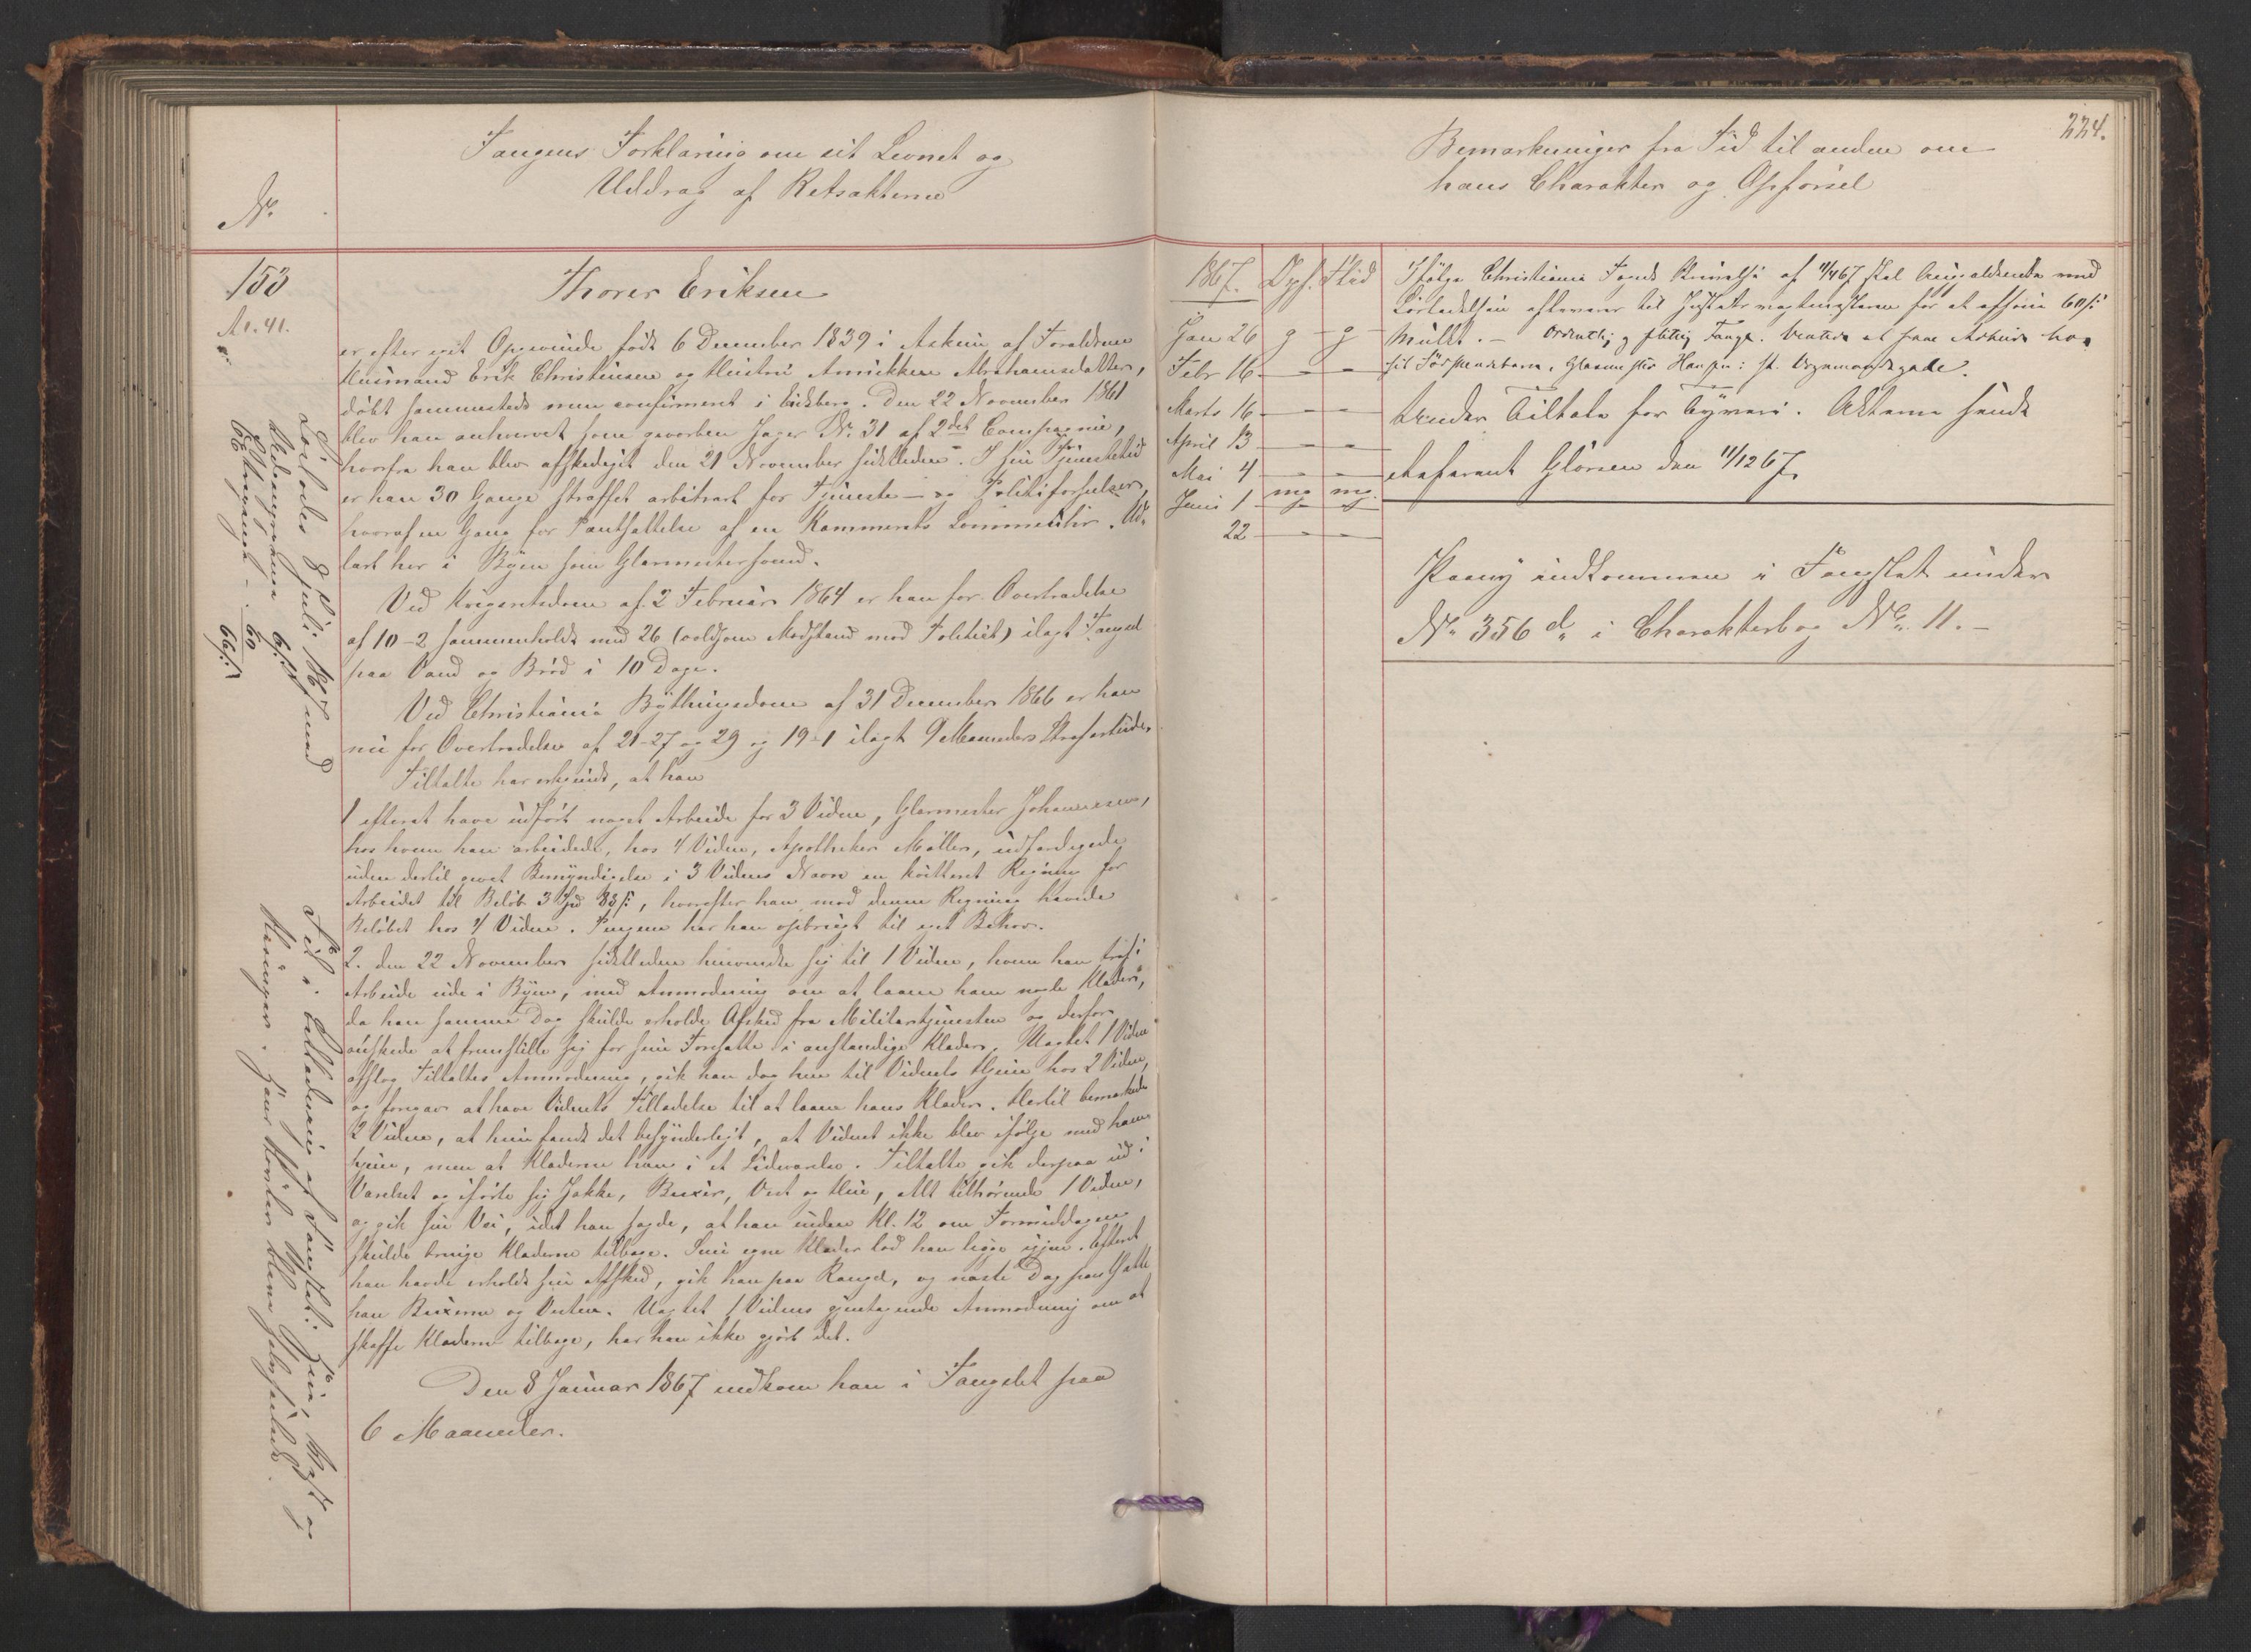 Fangens Forklaring om sit Levnet og
Uddrag af Retsakterne
No
153
A1. 41.
Thorer Eriksen
er efter eget Opgivende født 6 December 1839 i Askim af Forældrene
Husmand Erik Christiansen og Hustru Annikken Abrahamsdatter,
døbt sammesteds men confirmeret i Eidsberg. Den 22 November 1861
blev han anhvervet som gevorben Jæger No 31 af 2det Compagnie,
hvorfra han blev afskediget den 21 November sidstleden. I sin Tjenestetid
er han 30 Gange straffet arbitrært for Tjeneste- og Politiforseelser,
hvoraf en Gang for Pantsættelse af en Kammerats Lommeuhr. Ud-
lært her i Byen som Glarmestersvend.
Ved Krigsretsdom af 2 Februar 1864 er han for Overtrædelse
af 10-2 sammenholdt med 26 (voldsom Modstand mod Politiet) ilagt Fængsel
paa Vand og Brød i 10 Dage.
Ved Christiania Bythingsdom af 31 December 1866 er han
nu for Overtrædelse af 21-27 og 29 og 19-1 ilagt 9 Maaneders Strafarbeide.
Tiltalte har erkjendt, at han
1 efterat have udført noget Arbeide for 3 Vidne, Glarmester Johannesen,
hos hvem han arbeidede, hos 4 Vidne, Apotheker Møller, udfærdigede
uden dertil givet Bemyndigelse i 3 Vidnes Navn en kvitteret Regning for
Arbeidet til Beløb 3 Spd 83 ß, hvorefter han mod denne Regning hævede
Beløbet hos 4 Vidne. Pengene har han opbrugt til eget Behov.
2. den 22 November sidstleden henvendte sig til 1 Vidne, hvem han traf i
Arbeide ude i Byen, med Anmodning om at laane ham nogle Klæder,
da han samme Dag skulde erholde Afsked fra Militærtjenesten og derfor
ønskede at fremstille sig for sine Foresatte i anstændige Klæder. Uagtet 1 Vidne
afslog Tiltaltes Anmodning, gik han dog hen til Vidnets Hjem hos 2 Vidne,
og foregav at have Vidnets Tilladelse til at laane hans Klæder. Hertil bemærkede
2 Vidne, at hun fandt det besynderligt, at Vidnet ikke blev ifølge med ham
hjem, men at Klæderne hang i et Sideværelse. Tiltalte gik derpaa ud i
Værelset og iførte sig Jakke, Buxer, Vest og Hue, Alt tilhørende 1 Vidne,
og gik sin Vei, idet han sagde, at han inden Kl. 12 om Formiddagen
skulde bringe Klæderne tilbage. Sine egne Klæder lod han ligge igjen. Efterat
han havde erholdt sin Afsked, gik han paa Rangel, og næste Dag pantsatte
han Buxerne og Vesten. Uagtet 1 Vidnes gjentagende Anmodning om at
skaffe Klæderne tilbage, har han ikke gjort det.
Den 8 Januar 1867 indkom han i Fængslet paa
6 Maaneder.
Løslades 8 Juli 1867 med
60
66 ß
Fik i Beklædning af Fængslet: Vest og
224.
Bemærkninger fra Tid til anden om
hans Charakter og Opførsel
1867. Opf. Flid
Jan 26 g g
Febr 16 - -
Marts 16 - -
April 13 - -
Mai 4 - -
Juni 1 mg mg
22 - -
Ifølge Christiania Fogds Skrivelse af 11/4 67 skal Angjældende ved
Løsladelsen afleveres til for at afsone 60 ß
Mulkt. - Ordentlig og flittig Fange. Venter at faae Arbeide hos
sit Sødskendebarn, Glarmester Hansen i st.
Under Tiltale for Tyveri. Akterne sendt
den 11/12 67.
Paany indkommen i Fængslet under
No 356 d. i Charakterbog No 11. -